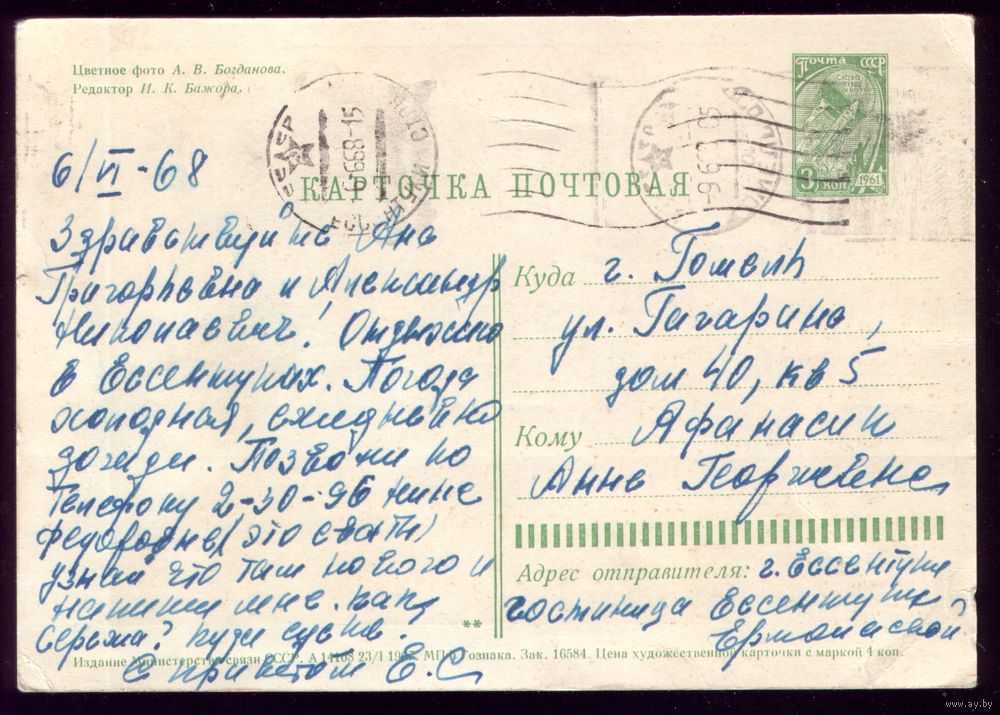 Цветное фото А. В. Богданова.
Редактор И. К. Бажора.
Почта СССР
3 коп 1961
6/VI-68
КАРТОЧКА ПОЧТОВАЯ
Здравствуйте Ана
Григорьевна и Александр
Николаевич! Отдыхаю
в Ессентуках. Погода
холодная, ежедневно
дожди. Позвони по
телефону 2-30-96 Нине
Федоровне (это сватья)
узнай что там нового и
напиши мне. как
Сережа?
С приветом Е. С
Куда г. Гомель
ул. Гагарина,
дом 40, кв 5
Кому Афанасик
Анне Георгиевне
Адрес отправителя: г. Ессентуки
гостиница Ессентуки
**
Издание Министерства связи СССР. А 14108 23/I МПФ Гознака. Зак. 16584. Цена художественной карточки с маркой 4 коп.
www.ay.by